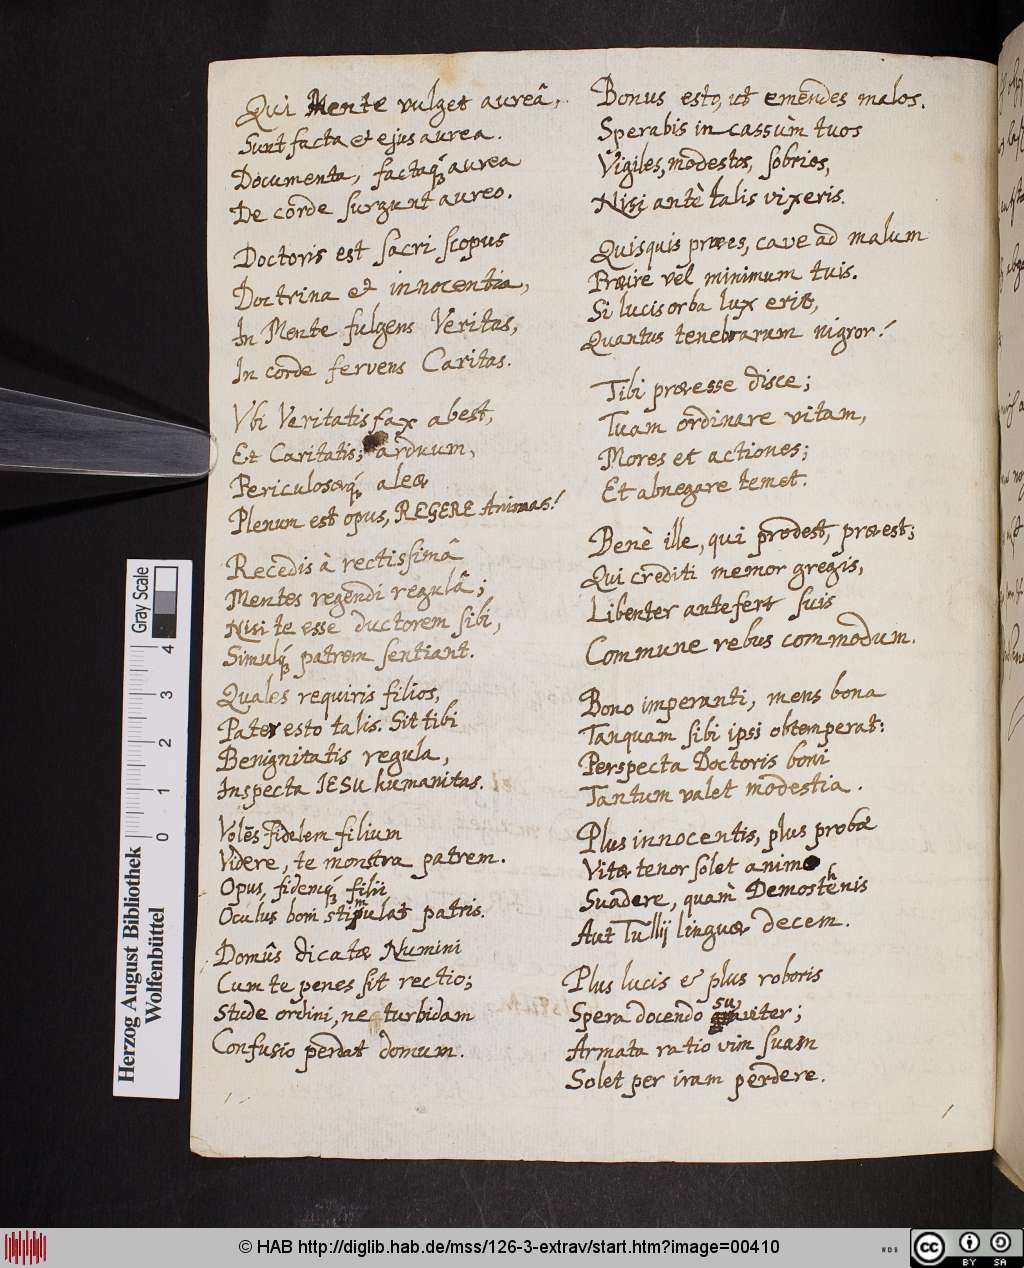 Qui Mente vulget aureâ,
Sunt facta et ejus aurea.
Documenta, factaq́ꝫ aurea
De corde surgunt aureo.
Doctoris est sacri scopus
Doctrina et innocentia,
In Mente fulgens Veritas,
In corde fervens Caritas.
Vbi Veritatis fax abest,
Et Caritatis; arduum,
Periculosæq́ꝫ aleæ
Plenum est opus, REGERE Animas!
Recedis à rectissimâ
Mentes regendi regulâ;
Nisi te esse ductorem sibi,
Simulq́ꝫ patrem sentiant.
Quales requiris filios,
Pater esto talis. Sit tibi
Benignitatis regula,
Inspecta IESU humanitas.
Volẽs fidelem filium
Videre, te monstra patrem.
Opus, fidemq́ꝫ filii
Oculus boni stimulat patris.
Domûs dicatæ Numini
Cum te penes sit rectio;
Stude ordini, ne turbidam
Confusio perdat domum.
Bonus esto, ut emendes malos.
Sperabis in cassùm tuos
Vigiles, modestos, sobrios,
Nisi antè talis vixeris.
Quisquis præes, cave ad malum
Præire vel minimum tuis.
Si lucis orba lux erit,
Quantus tenebrarum nigror!
Tibi præesse disce;
Tuam ordinare vitam,
Mores et actiones;
Et abnegare temet.
Benè ille, qui prodest, præest;
Qui crediti memor gregis,
Libenter antefert suis
Commune rebus commodum.
Bono imperanti, mens bona
Tanquam sibi ipsi obtemperat:
Perspecta Doctoris boni
Tantum valet modestia.
Plus innocentis, plus probæ
Vitæ tenor solet animo
Suadere, quàm Demosthenis
Aut Tullij linguæ decem.
Plus lucis & plus roboris
Spera docendo suaviter;
Armata ratio vim suam
Solet per iram perdere.
Gray Scale
0 1 2 3 4
Herzog August Bibliothek
Wolfenbüttel
© HAB http://diglib.hab.de/mss/126-3-extrav/start.htm?image=00410
WDB
cc BY SA